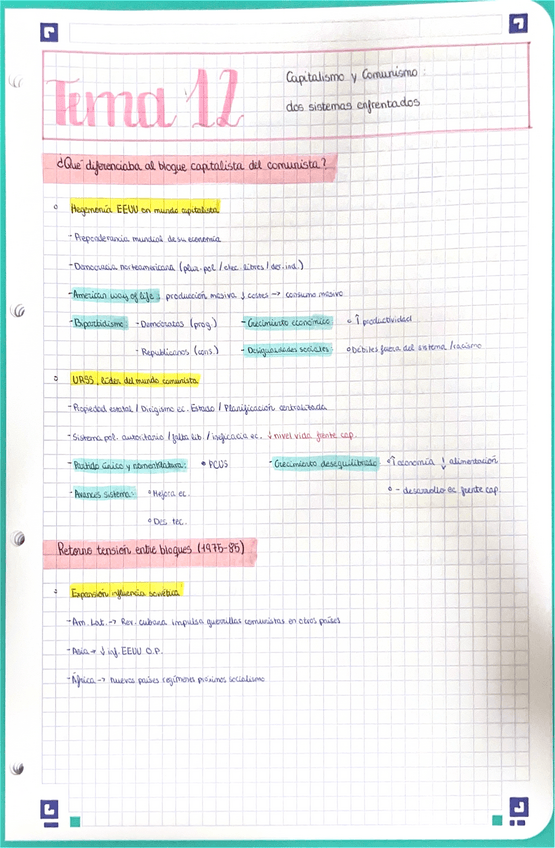 Tema 12
Capitalismo y Comunismo:
dos sistemas enfrentados
¿Qué diferenciaba al bloque capitalista del comunista?
Hegemonía EEUU en mundo capitalista
- Preponderancia mundial de su economía
- Democracia norteamericana (plur. pol / elec. libres / der. ind.)
- American way of life: producción masiva ↓ costes → consumo masivo
- Bipartidismo - Demócratas (prog.) - Crecimiento económico: ↑ productividad
- Republicanos (cons.) - Desigualdades sociales: Débiles fuera del sistema / racismo
URSS, líder del mundo comunista
- Propiedad estatal / Dirigismo ec. Estado / Planificación centralizada
- Sistema pol. autoritario / falta lib / ineficacia ec. ↓ nivel vida frente cap.
- Partido único y nomenklatura: PCUS - Crecimiento desequilibrado: ↑ economía ↓ alimentación
- Avances sistema: Mejora ec. - desarrollo ec. frente cap.
Des. tec.
Retorno tensión entre bloques (1975-85)
Expansión influencia soviética
- Am. Lat. → Rev. cubana impulsa guerrillas comunistas en otros países
- Asia → ↓ inf. EEUU O.P.
- África → nuevos países regímenes próximos socialismo